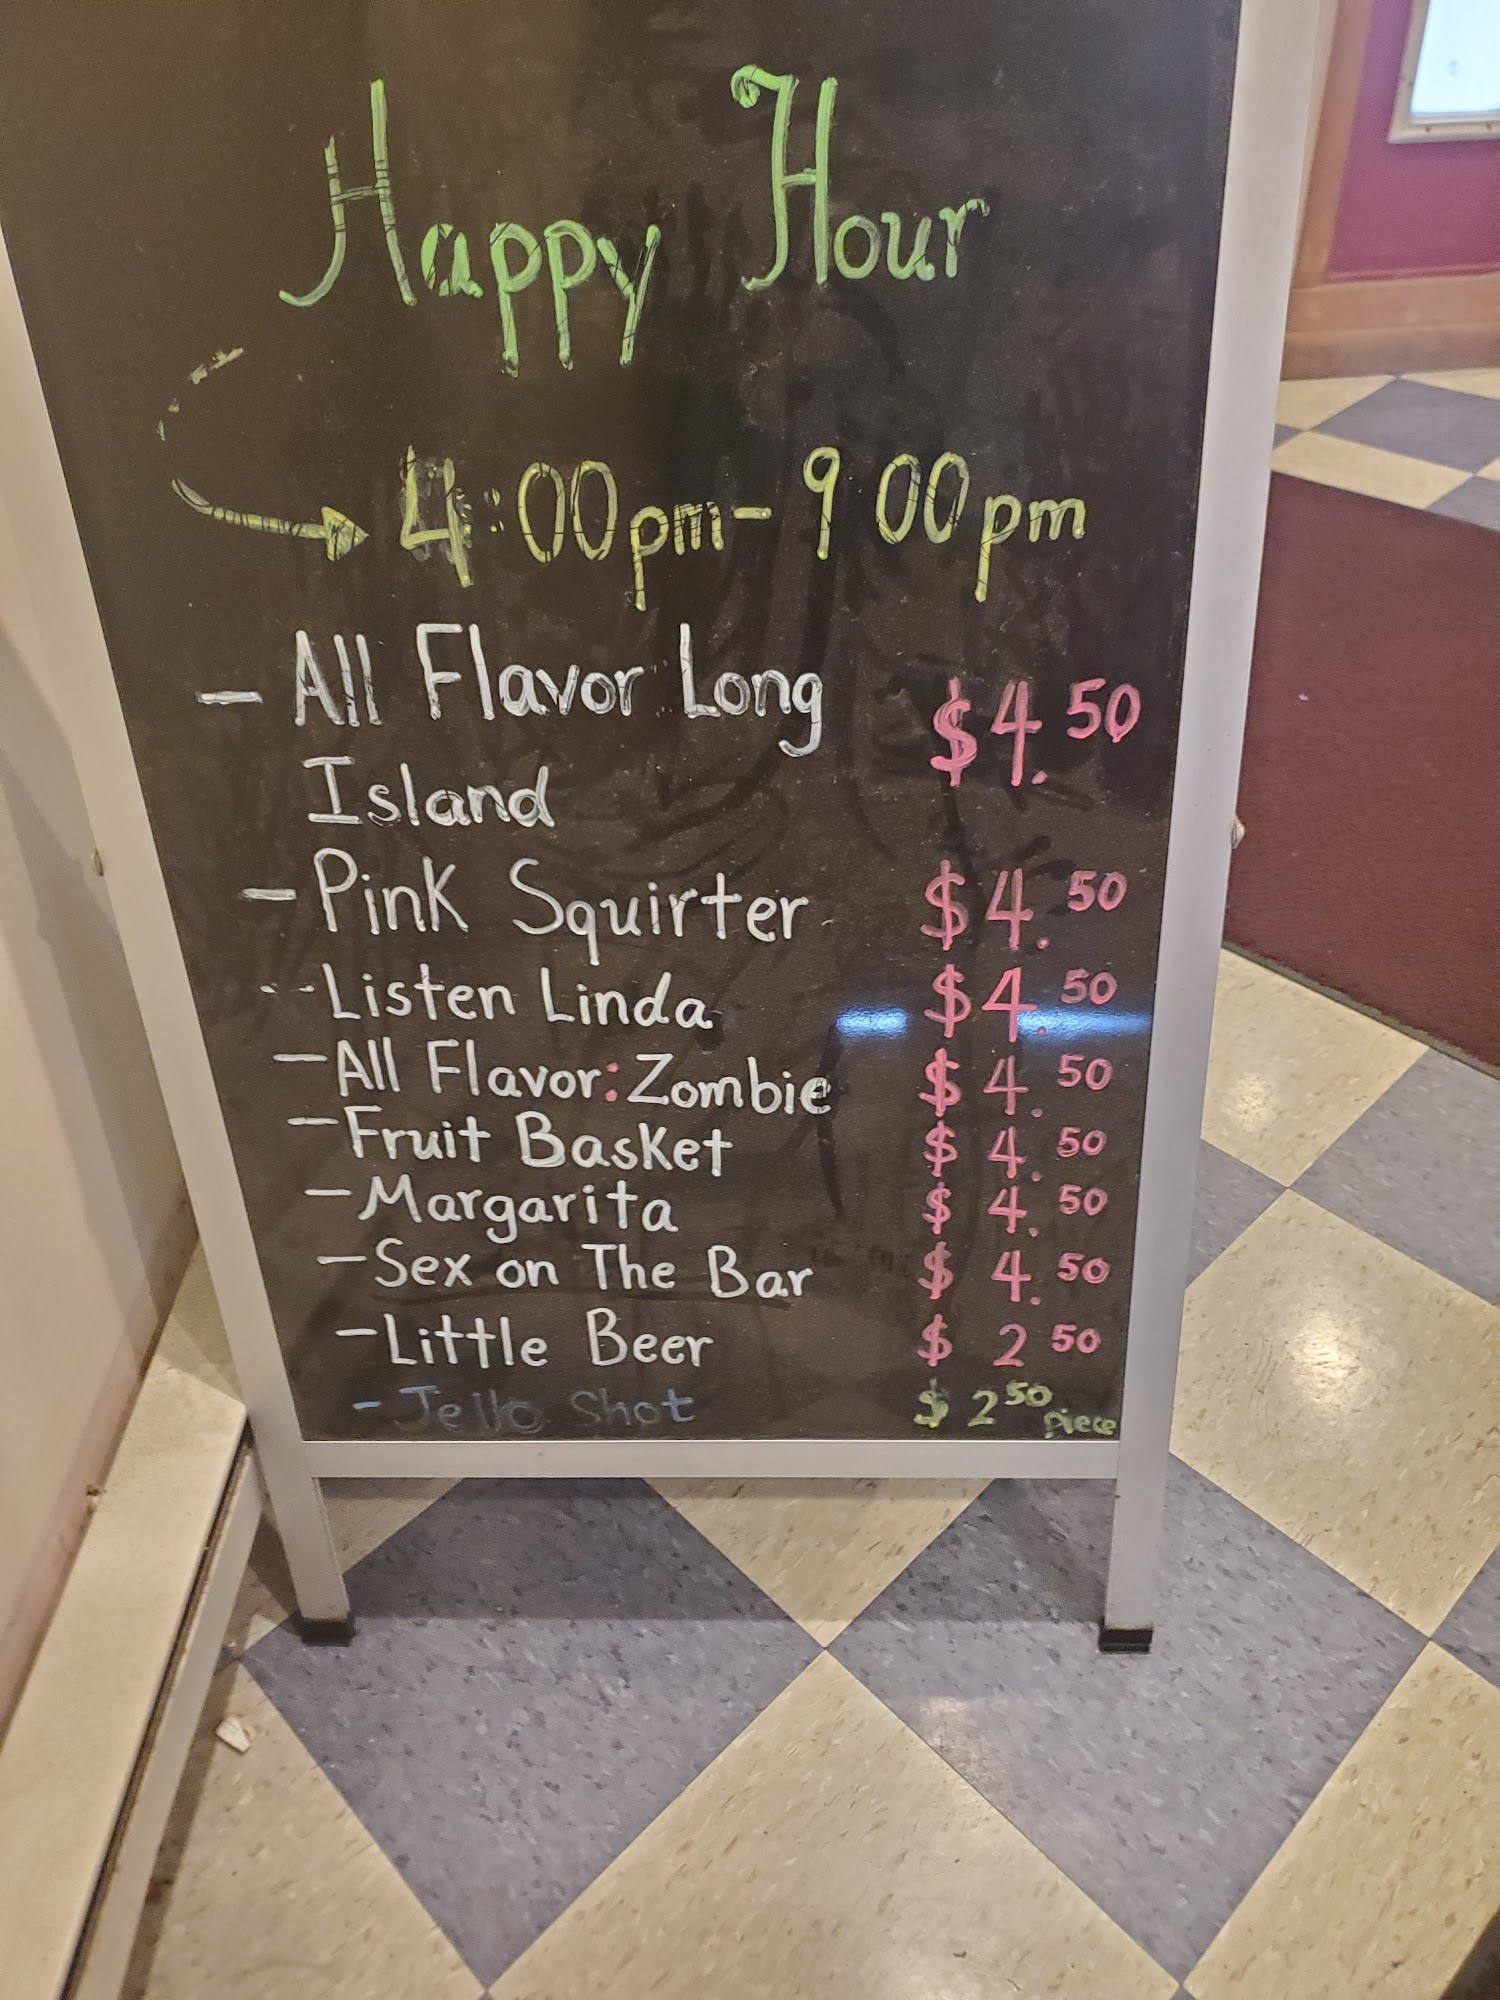 Happy Hour
4:00pm - 9 00pm
- All Flavor Long $4.50
Island
- Pink Squirter $4.50
- Listen Linda $4.50
- All Flavor: Zombie $4.50
- Fruit Basket $4.50
- Margarita $4.50
- Sex on The Bar $4.50
- Little Beer $2 50
- Jello Shot $2 50 piece